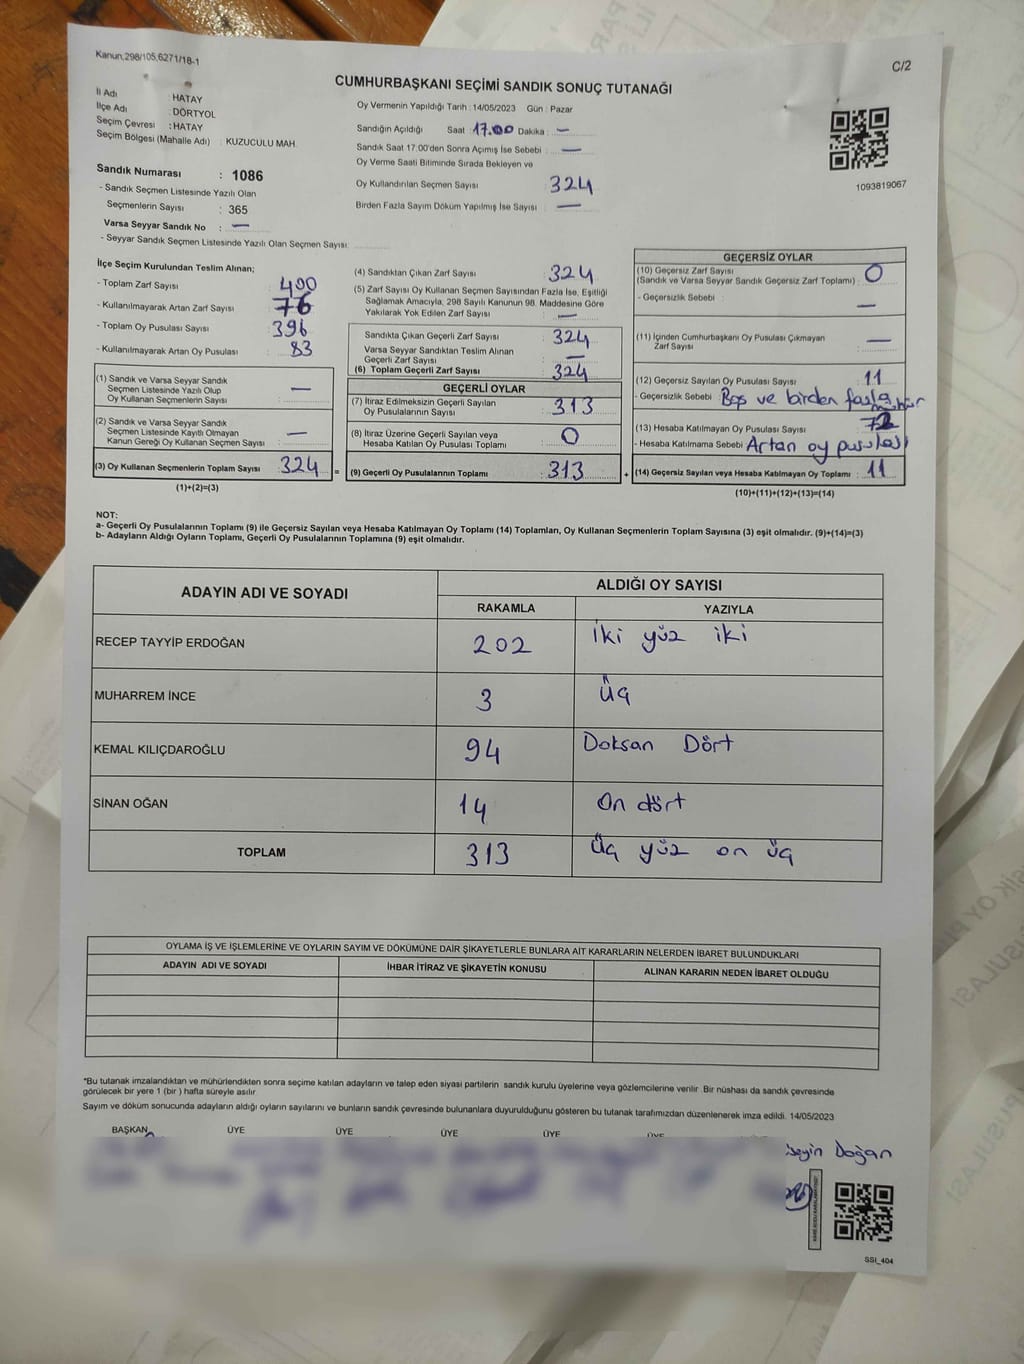 Kanun,298/105,6271/18-1
C/2
CUMHURBAŞKANI SEÇİMİ SANDIK SONUÇ TUTANAĞI
İl Adı : HATAY
İlçe Adı : DÖRTYOL
Seçim Çevresi : HATAY
Seçim Bölgesi (Mahalle Adı) : KUZUCULU MAH.
Sandık Numarası : 1086
- Sandık Seçmen Listesinde Yazılı Olan
Seçmenlerin Sayısı : 365
Varsa Seyyar Sandık No : —
- Seyyar Sandık Seçmen Listesinde Yazılı Olan Seçmen Sayısı:
Oy Vermenin Yapıldığı Tarih : 14/05/2023 Gün : Pazar
Sandığın Açıldığı Saat 17.00 Dakika : —
Sandık Saat 17:00'den Sonra Açımış İse Sebebi : —
Oy Verme Saati Bitiminde Sırada Bekleyen ve
Oy Kullandırılan Seçmen Sayısı : 324
Birden Fazla Sayım Döküm Yapılmış İse Sayısı : —
1093819067
İlçe Seçim Kurulundan Teslim Alınan;
- Toplam Zarf Sayısı : 400
- Kullanılmayarak Artan Zarf Sayısı : 76
- Toplam Oy Pusulası Sayısı : 396
- Kullanılmayarak Artan Oy Pusulası : 83
(1) Sandık ve Varsa Seyyar Sandık
Seçmen Listesinde Yazılı Olup
Oy Kullanan Seçmenlerin Sayısı : —
(2) Sandık ve Varsa Seyyar Sandık
Seçmen Listesinde Kayıtlı Olmayan
Kanun Gereği Oy Kullanan Seçmen Sayısı : —
(3) Oy Kullanan Seçmenlerin Toplam Sayısı : 324 =
(1)+(2)=(3)
(4) Sandıktan Çıkan Zarf Sayısı : 324
(5) Zarf Sayısı Oy Kullanan Seçmen Sayısından Fazla İse, Eşitliği
Sağlamak Amacıyla, 298 Sayılı Kanunun 98. Maddesine Göre
Yakılarak Yok Edilen Zarf Sayısı : —
Sandıkta Çıkan Geçerli Zarf Sayısı : 324
Varsa Seyyar Sandıktan Teslim Alınan
Geçerli Zarf Sayısı : —
(6) Toplam Geçerli Zarf Sayısı : 324
GEÇERLİ OYLAR
(7) İtiraz Edilmeksizin Geçerli Sayılan
Oy Pusulalarının Sayısı : 313
(8) İtiraz Üzerine Geçerli Sayılan veya
Hesaba Katılan Oy Pusulası Toplamı : 0
(9) Geçerli Oy Pusulalarının Toplamı : 313 +
GEÇERSİZ OYLAR
(10) Geçersiz Zarf Sayısı
(Sandık ve Varsa Seyyar Sandık Geçersiz Zarf Toplamı) : 0
- Geçersizlik Sebebi : —
(11) İçinden Cumhurbaşkanı Oy Pusulası Çıkmayan
Zarf Sayısı : —
(12) Geçersiz Sayılan Oy Pusulası Sayısı : 11
- Geçersizlik Sebebi : Boş ve birden fazla mühür
(13) Hesaba Katılmayan Oy Pusulası Sayısı :
- Hesaba Katılmama Sebebi : Artan oy pusulası
(14) Geçersiz Sayılan veya Hesaba Katılmayan Oy Toplamı : 11
(10)+(11)+(12)+(13)=(14)
NOT:
a- Geçerli Oy Pusulalarının Toplamı (9) ile Geçersiz Sayılan veya Hesaba Katılmayan Oy Toplamı (14) Toplamları, Oy Kullanan Seçmenlerin Toplam Sayısına (3) eşit olmalıdır. (9)+(14)=(3)
b- Adayların Aldığı Oyların Toplamı, Geçerli Oy Pusulalarının Toplamına (9) eşit olmalıdır.
ADAYIN ADI VE SOYADI ALDIĞI OY SAYISI
RAKAMLA YAZIYLA
RECEP TAYYİP ERDOĞAN 202 İki yüz iki
MUHARREM İNCE 3 Üç
KEMAL KILIÇDAROĞLU 94 Doksan Dört
SİNAN OĞAN 14 On dört
TOPLAM 313 Üç yüz on üç
OYLAMA İŞ VE İŞLEMLERİNE VE OYLARIN SAYIM VE DÖKÜMÜNE DAİR ŞİKAYETLERLE BUNLARA AİT KARARLARIN NELERDEN İBARET BULUNDUKLARI
ADAYIN ADI VE SOYADI İHBAR İTİRAZ VE ŞİKAYETİN KONUSU ALINAN KARARIN NEDEN İBARET OLDUĞU
*Bu tutanak imzalandıktan ve mühürlendikten sonra seçime katılan adayların ve talep eden siyasi partilerin sandık kurulu üyelerine veya gözlemcilerine verilir. Bir nüshası da sandık çevresinde
görülecek bir yere 1 (bir ) hafta süreyle asılır
Sayım ve döküm sonucunda adayların aldığı oyların sayılarını ve bunların sandık çevresinde bulunanlara duyurulduğunu gösteren bu tutanak tarafımızdan düzenlenerek imza edildi. 14/05/2023
BAŞKAN ÜYE ÜYE ÜYE ÜYE ÜYE
seyin Doğan
SSI_404